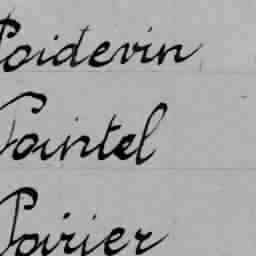 Poidevin
Pointel
Poirier